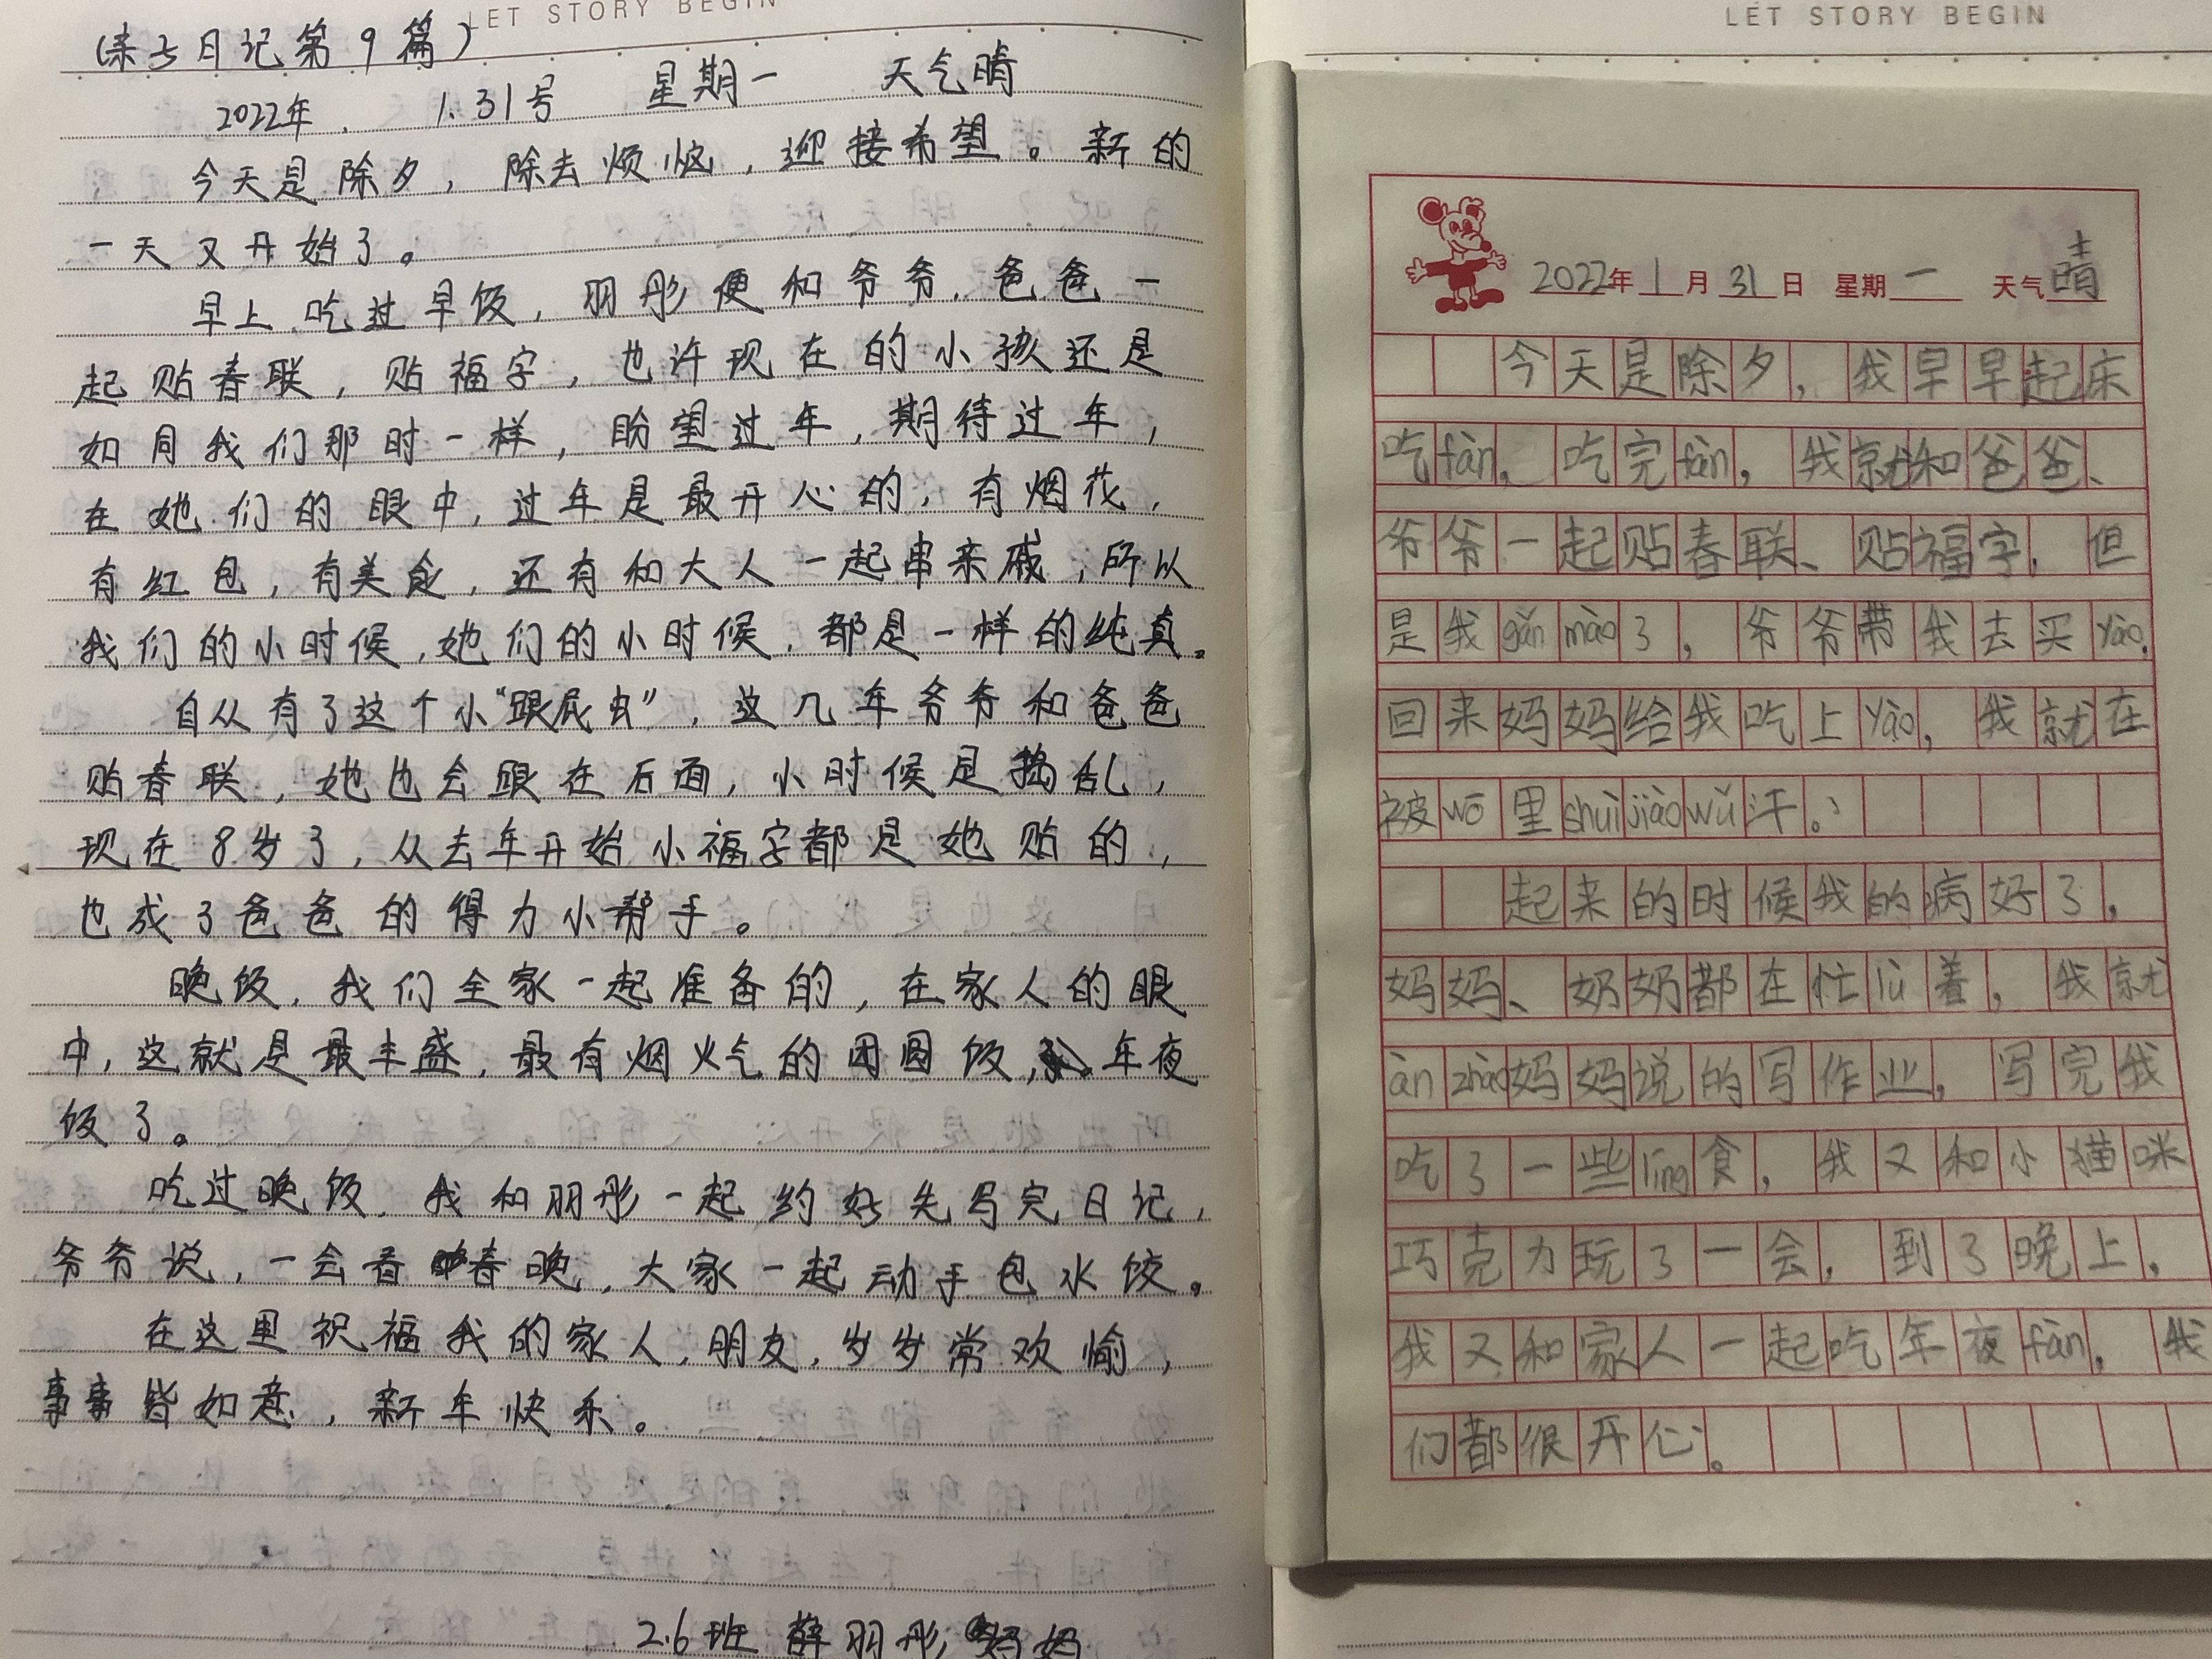 LET STORY BEGIN
(亲子日记第9篇)
2022年. 1.31号 星期一 天气晴
今天是除夕,除去烦恼,迎接希望。新的
一天又开始了。
早上吃过早饭,羽彤便和爷爷、爸爸一
起贴春联,贴福字,也许现在的小孩还是
如同我们那时一样,盼望过年,期待过年,
在她们的眼中,过年是最开心的,有烟花,
有红包,有美食,还有和大人一起串亲戚,所以
我们的小时候,她们的小时候,都是一样的纯真。
自从有了这个小“跟屁虫”,这几年爷爷和爸爸
贴春联,她也会跟在后面,小时候是捣乱,
现在8岁了,从去年开始小福字都是她贴的,
也成了爸爸的得力小帮手。
晚饭,我们全家一起准备的,在家人的眼
中,这就是最丰盛,最有烟火气的团圆饭,年夜
饭了。
吃过晚饭,我和羽彤一起约好先写完日记,
爷爷说,一会看春晚,大家一起动手包水饺。
在这里祝福我的家人,朋友,岁岁常欢愉,
事事皆如意,新年快乐。
2.6班 薛羽彤妈妈
LET STORY BEGIN
2022年1月31日 星期一 天气晴
今天是除夕,我早早起床
吃fàn,吃完fàn,我就和爸爸、
爷爷一起贴春联、贴福字,但
是我gǎn mào了,爷爷带我去买yào,
回来妈妈给我吃上yào,我就在
被wō里shuì jiào wǔ汗。
起来的时候我的病好了,
妈妈、奶奶都在忙lù着,我就
àn zhào妈妈说的写作业,写完我
吃了一些líng食,我又和小猫咪
巧克力玩了一会,到了晚上,
我又和家人一起吃年夜fàn,我
们都很开心。